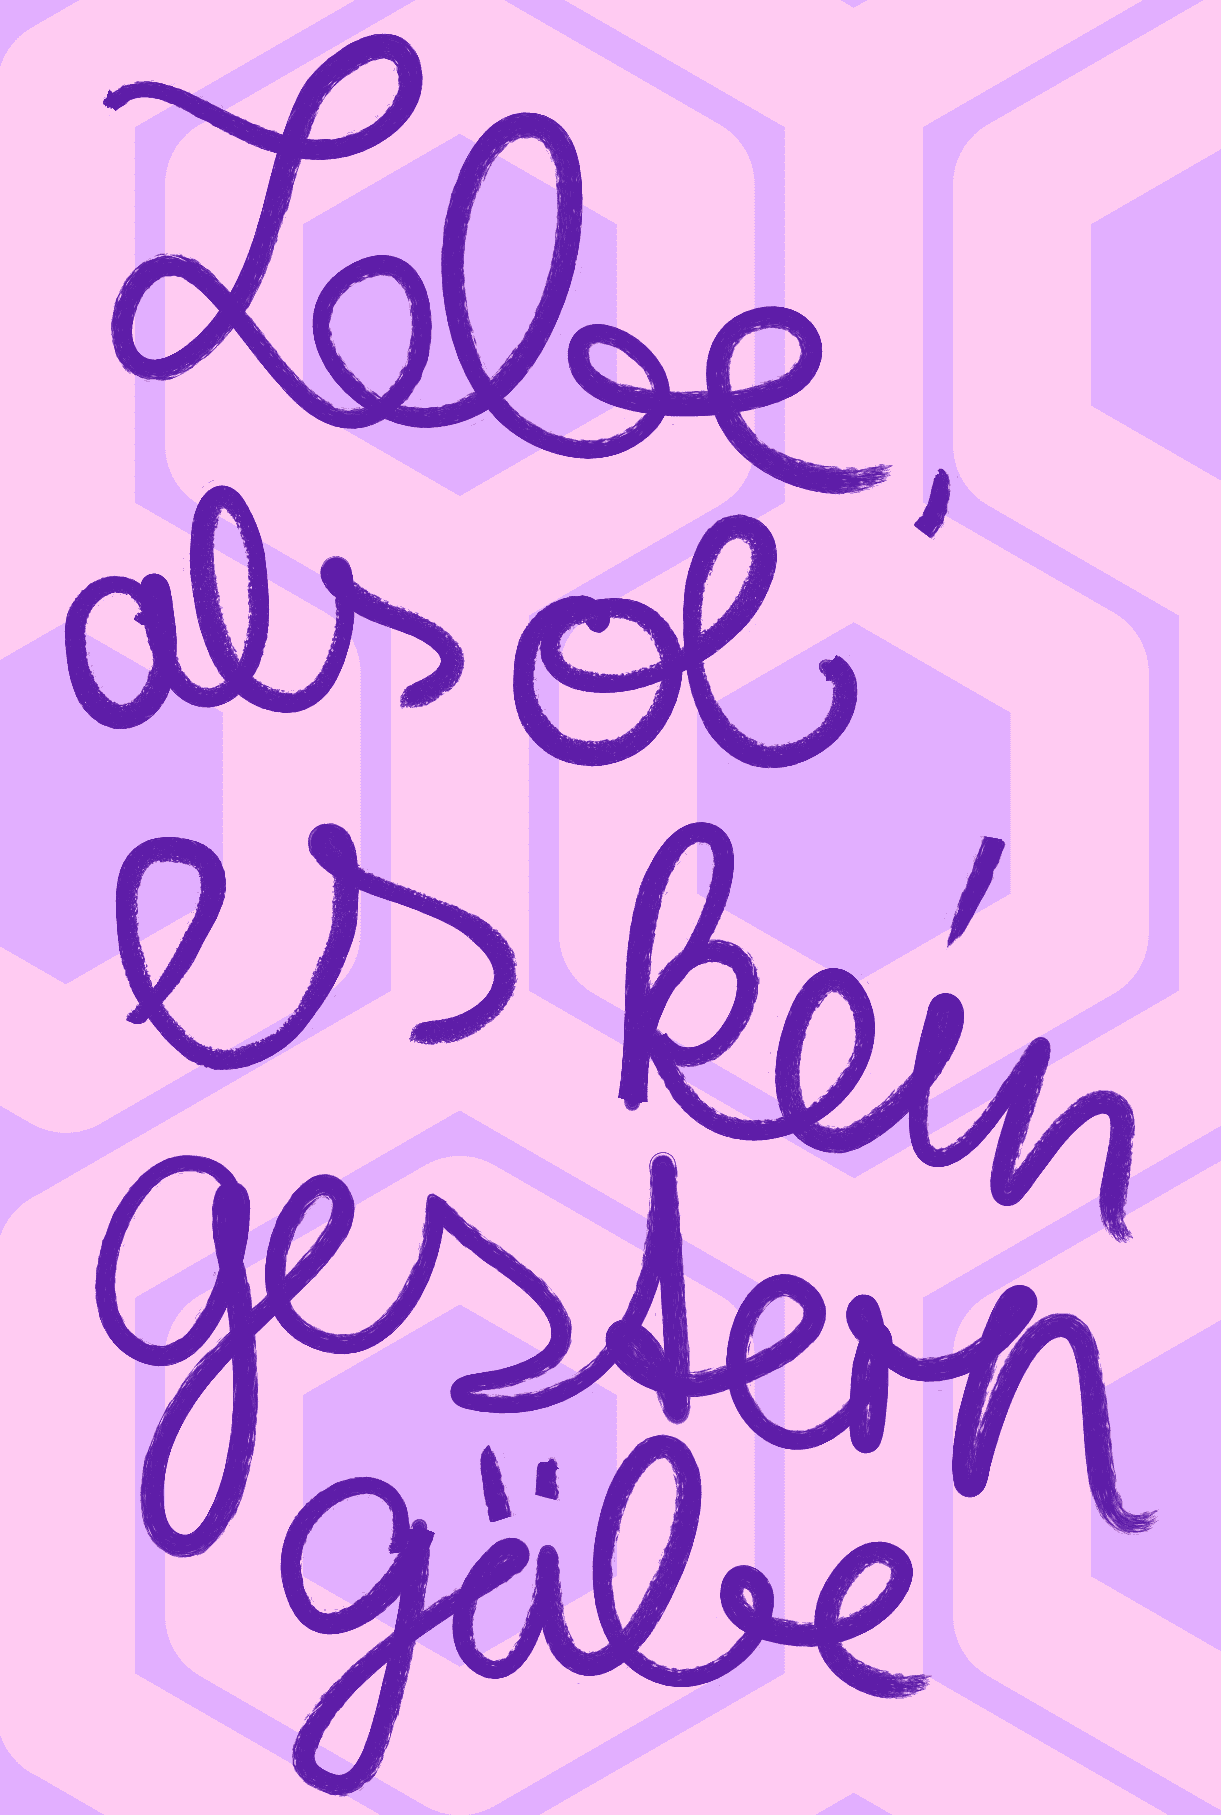 Lebe,
als ob
es kein
gestern
gäbe